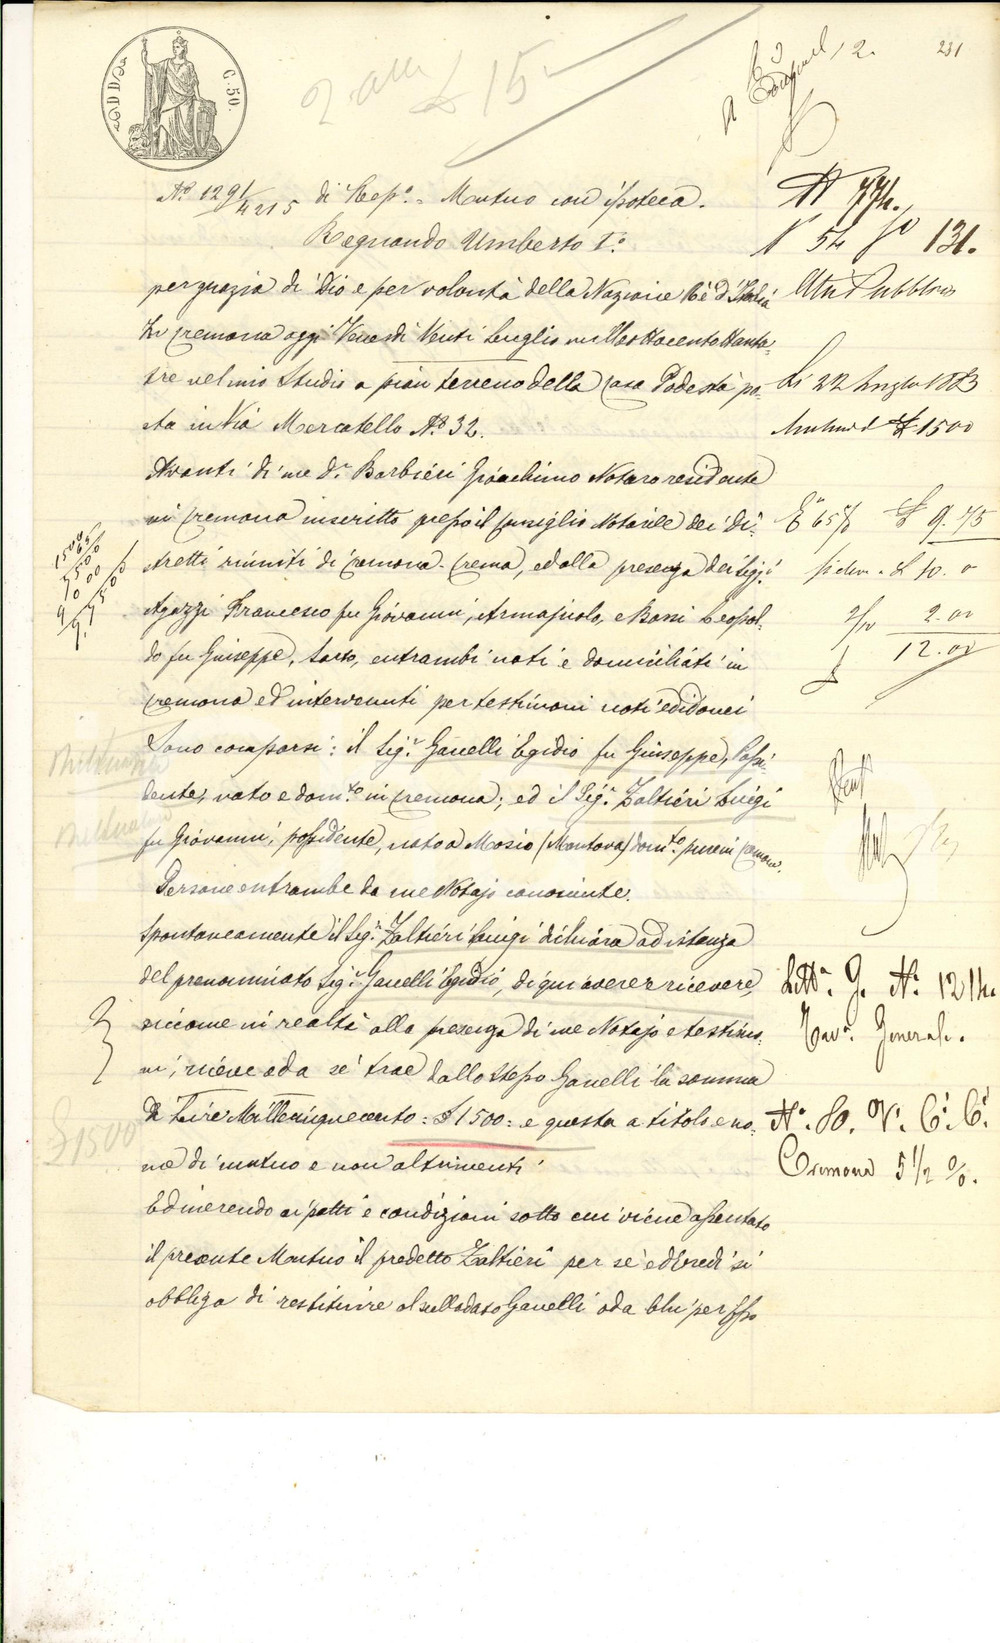 231
C. 50.
2 £ 15
N.° 1291/4215 di Rep.° = Mutuo con ipoteca.
Regnando Umberto I.°
per grazia di Dio e per volontà della Nazione Rè d'Italia
In Cremona oggi Venerdì Venti Luglio milleottocentottanta-
tre nel mio Studio a pian terreno della Casa Podestà po-
sta in Via Mercatello N.° 32.
Avanti di me D.r Barbieri Gioachimo Notaro residente
in Cremona inscritto presso il Consiglio Notarile dei Di-
stretti riuniti di Cremona-Crema, ed alla presenza dei Sigg.i
Agazzi Francesco fu Giovanni, Armajuolo, e Bassi Leopol-
do fu Giuseppe, Sarto, entrambi nati e domiciliati in
Cremona ed intervenuti per testimoni noti ed idonei
Sono comparsi: il Sig.r Ganelli Egidio fu Giuseppe, Possi-
dente, nato e dom.to in Cremona; ed il Sig.r Zaltieri Luigi
fu Giovanni, possidente, nato a Mosio (Mantova) dom.to pure in Cremona.
Persone entrambe da me Notajo conosciute.
Spontaneamente il Sig.r Zaltieri Luigi dichiara ad istanza
del prenominato Sig.r Ganelli Egidio, di qui avere e ricevere,
siccome in realtà alla presenza di me Notajo e testimo-
ni, riceve ed a sé trae dallo stesso Ganelli la somma
di Lire Millecinquecento = £ 1500 = e questa a titolo e no-
me di mutuo e non altrimenti
Ed inerendo ai patti e condizioni sotto cui viene assentato
il presente Mutuo il predetto Zaltieri per sé ed Eredi si
obbliga di restituire al sullodato Ganelli od a chi per esso
N 774.
N 54 f° 131.
Atti Pubblici
Li 22 Luglio 1883
£ 1500
65 % £ 9.75
£ 10. 0
2/10 2.00
12.00
£ 1500
Lett.a G. N.° 1214.
Tav.a Generale.
N.° 80. V. C. C.
Cremona 5 1/2 %.